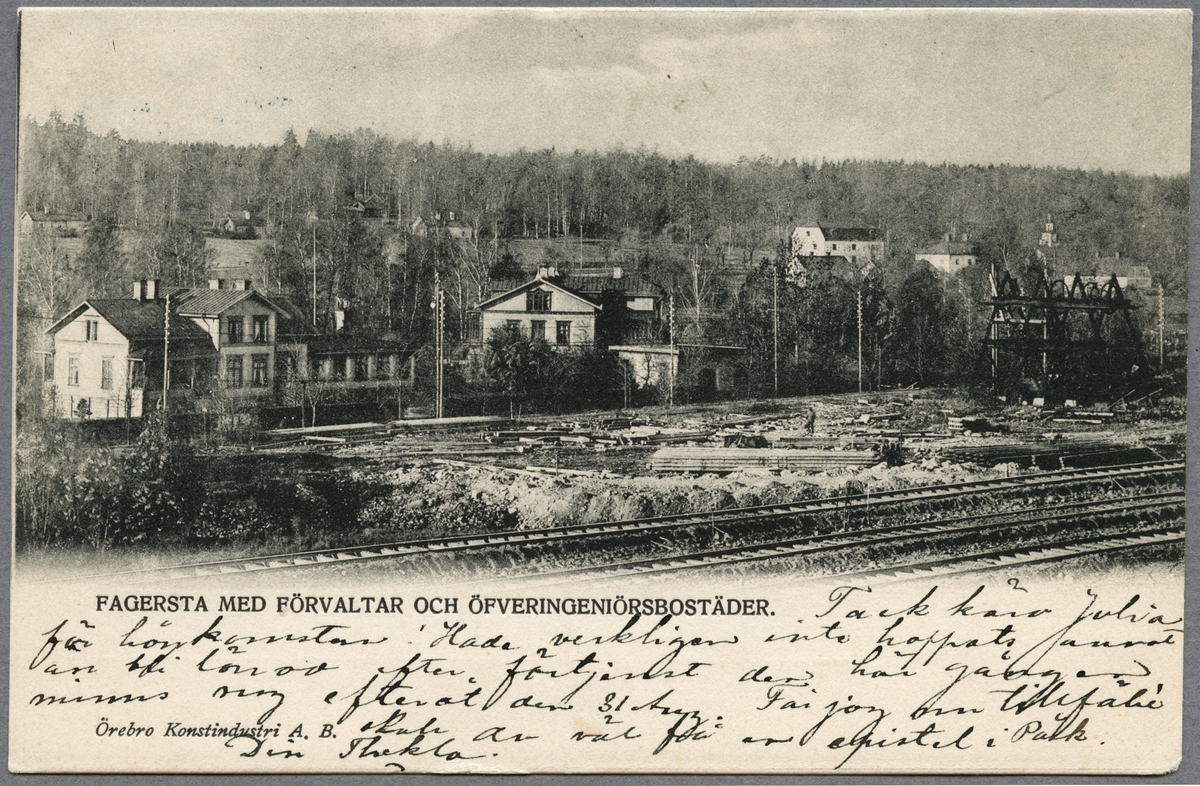 FAGERSTA MED FÖRVALTAR OCH ÖFVERINGENIÖRSBOSTÄDER.
Tack kära Julia
för hågkomsten! Hade verkligen inte hoppats annat
än bli lönad efter förtjenst den här gången
minns mig efteråt den 31 Aug. Får jag en tillfälle
skall du väl få en epistel i Påsk.
Din Thekla.
Örebro Konstindustri A. B.